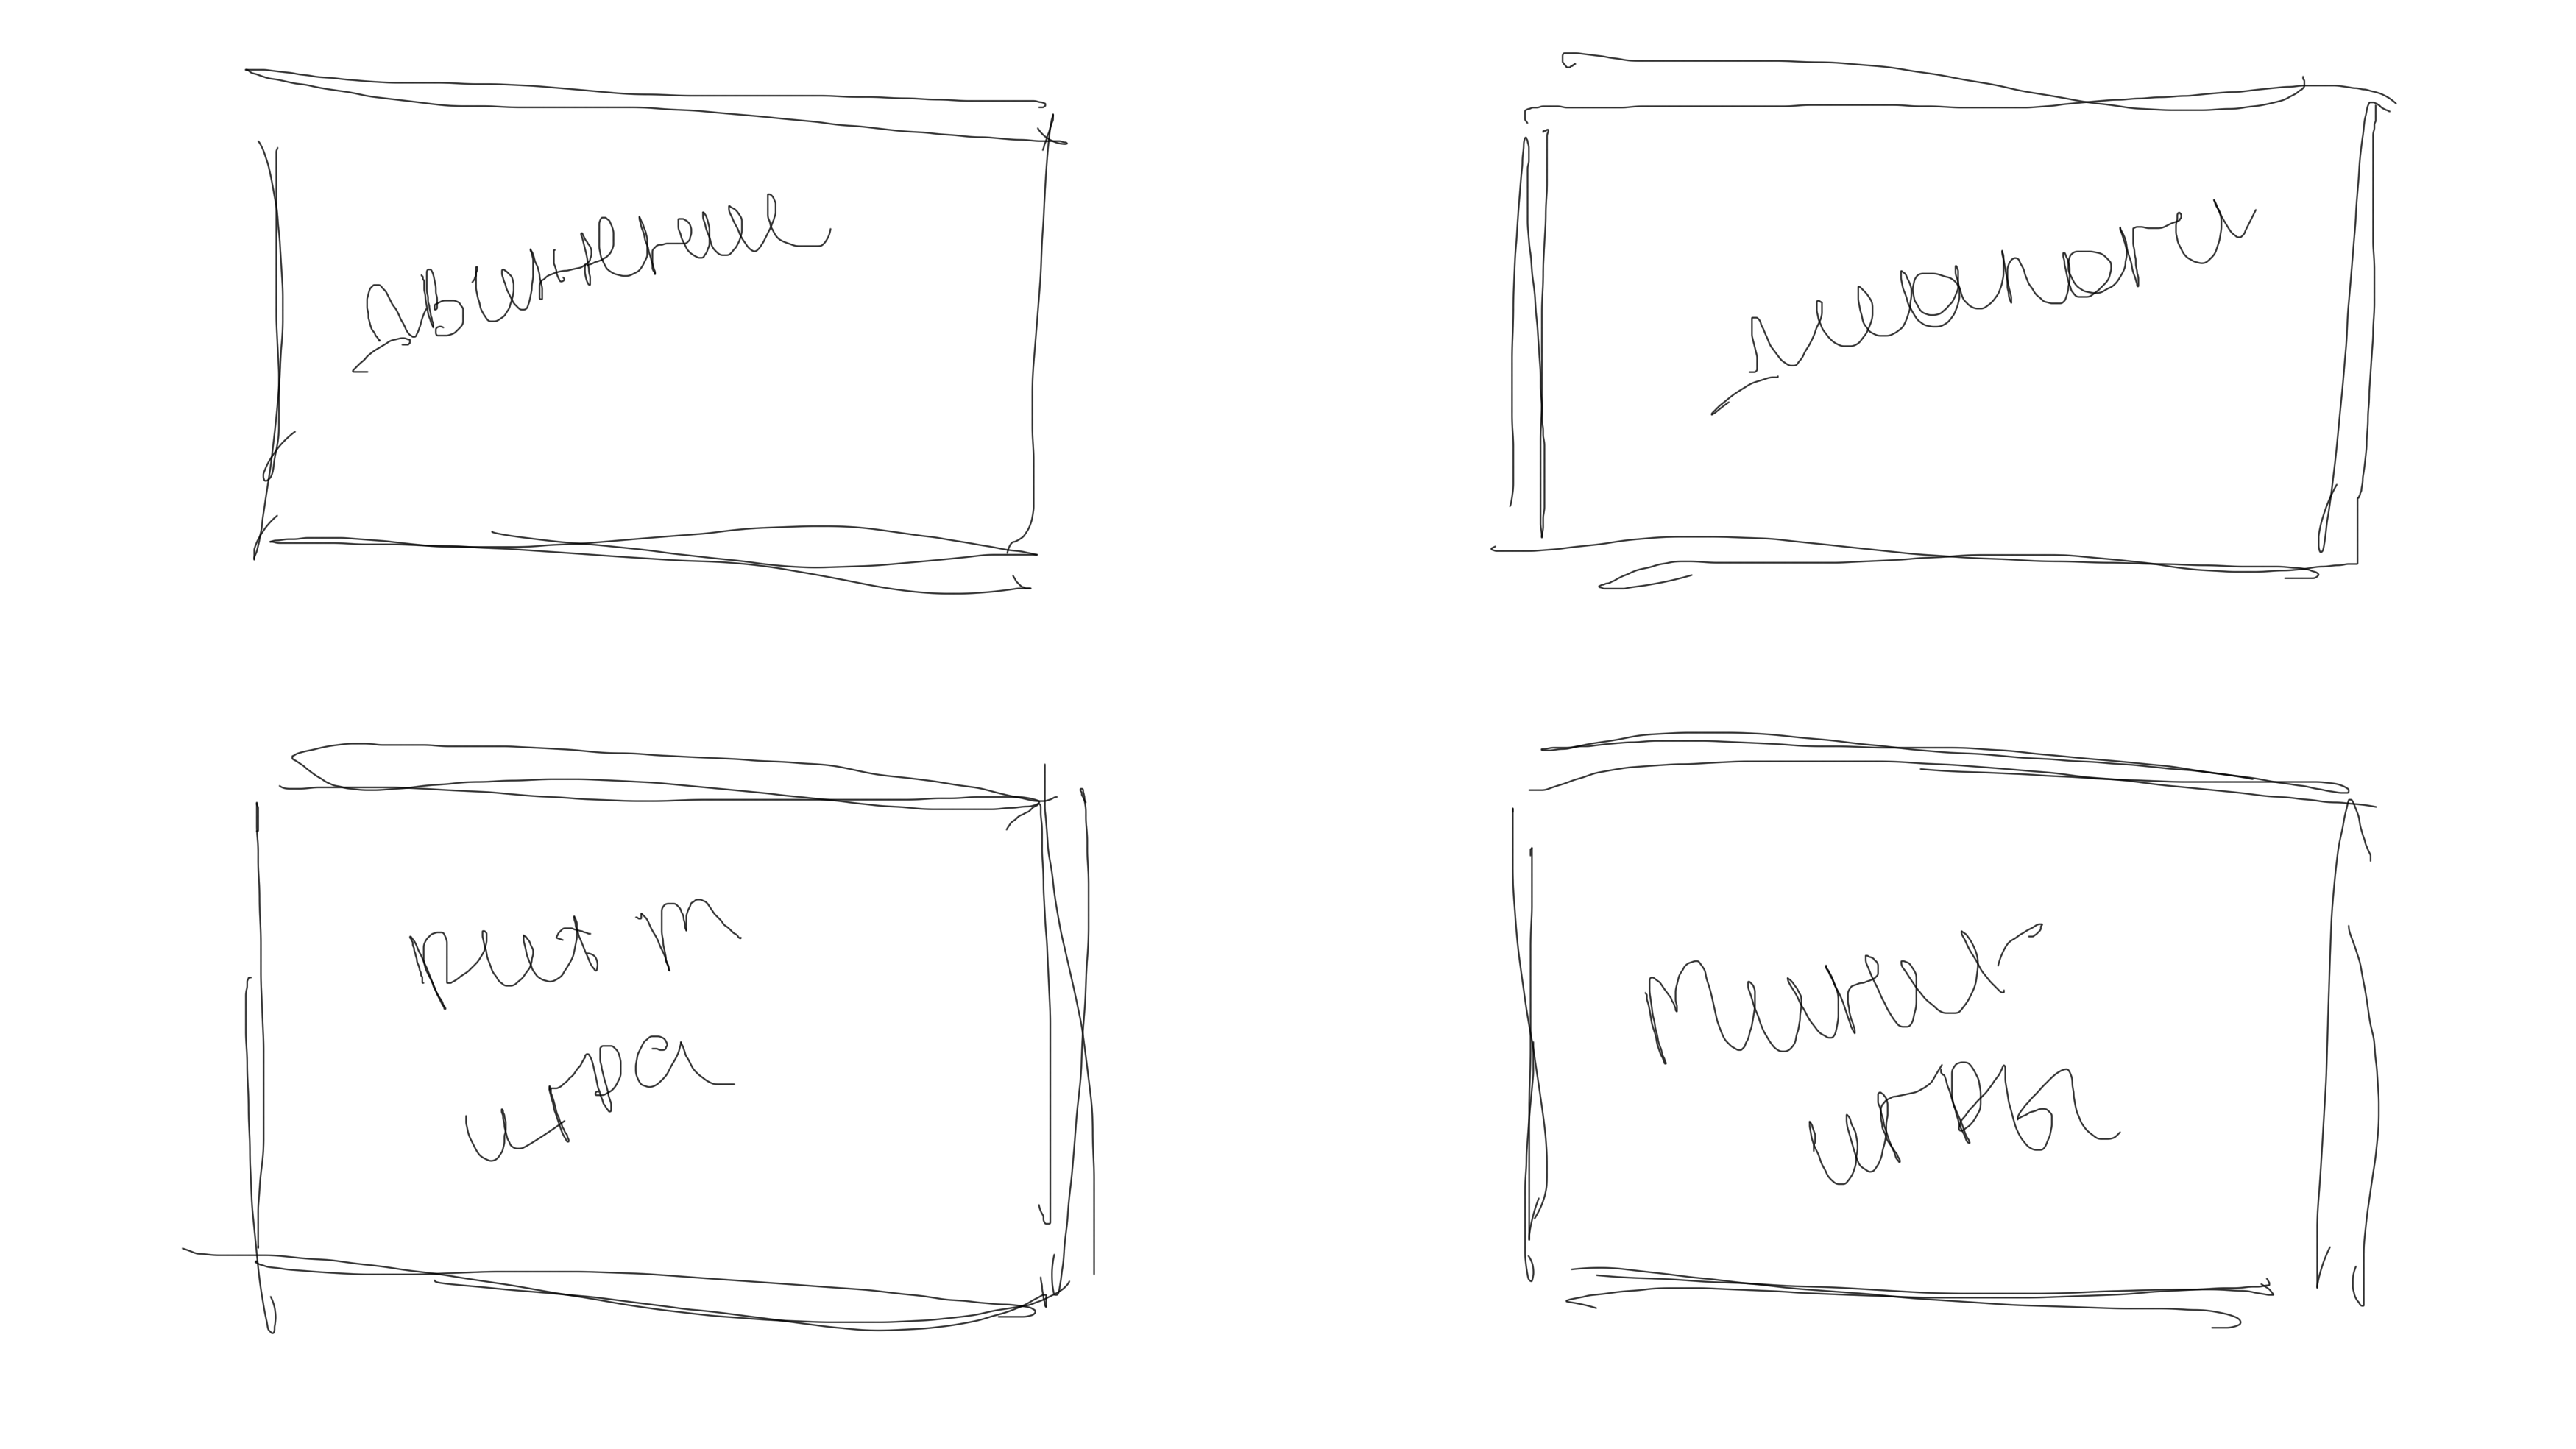 движение
диалоги
ритм
игра
мини-
игра